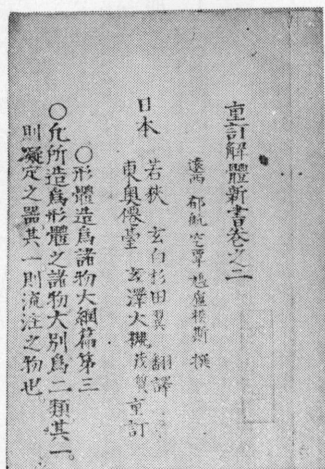 重訂解體新書卷之二
鳩盧模斯 撰
日本
若狹 玄白杉田翼 翻譯
東奥僊臺 玄澤大槻茂質 重訂
〇形體造爲諸物大綱篇第三
〇凢所造爲形體之諸物大別爲二類其一
則凝定之器其一則流注之物也